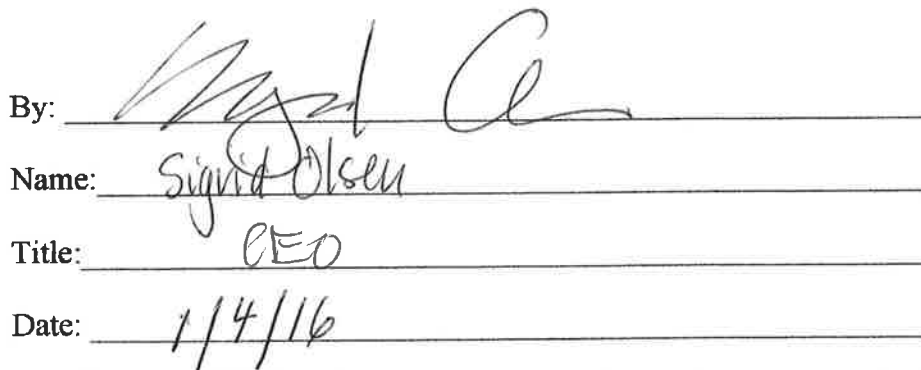 By:
Name: Sigrid Olsen
Title: CEO
Date: 1/4/16